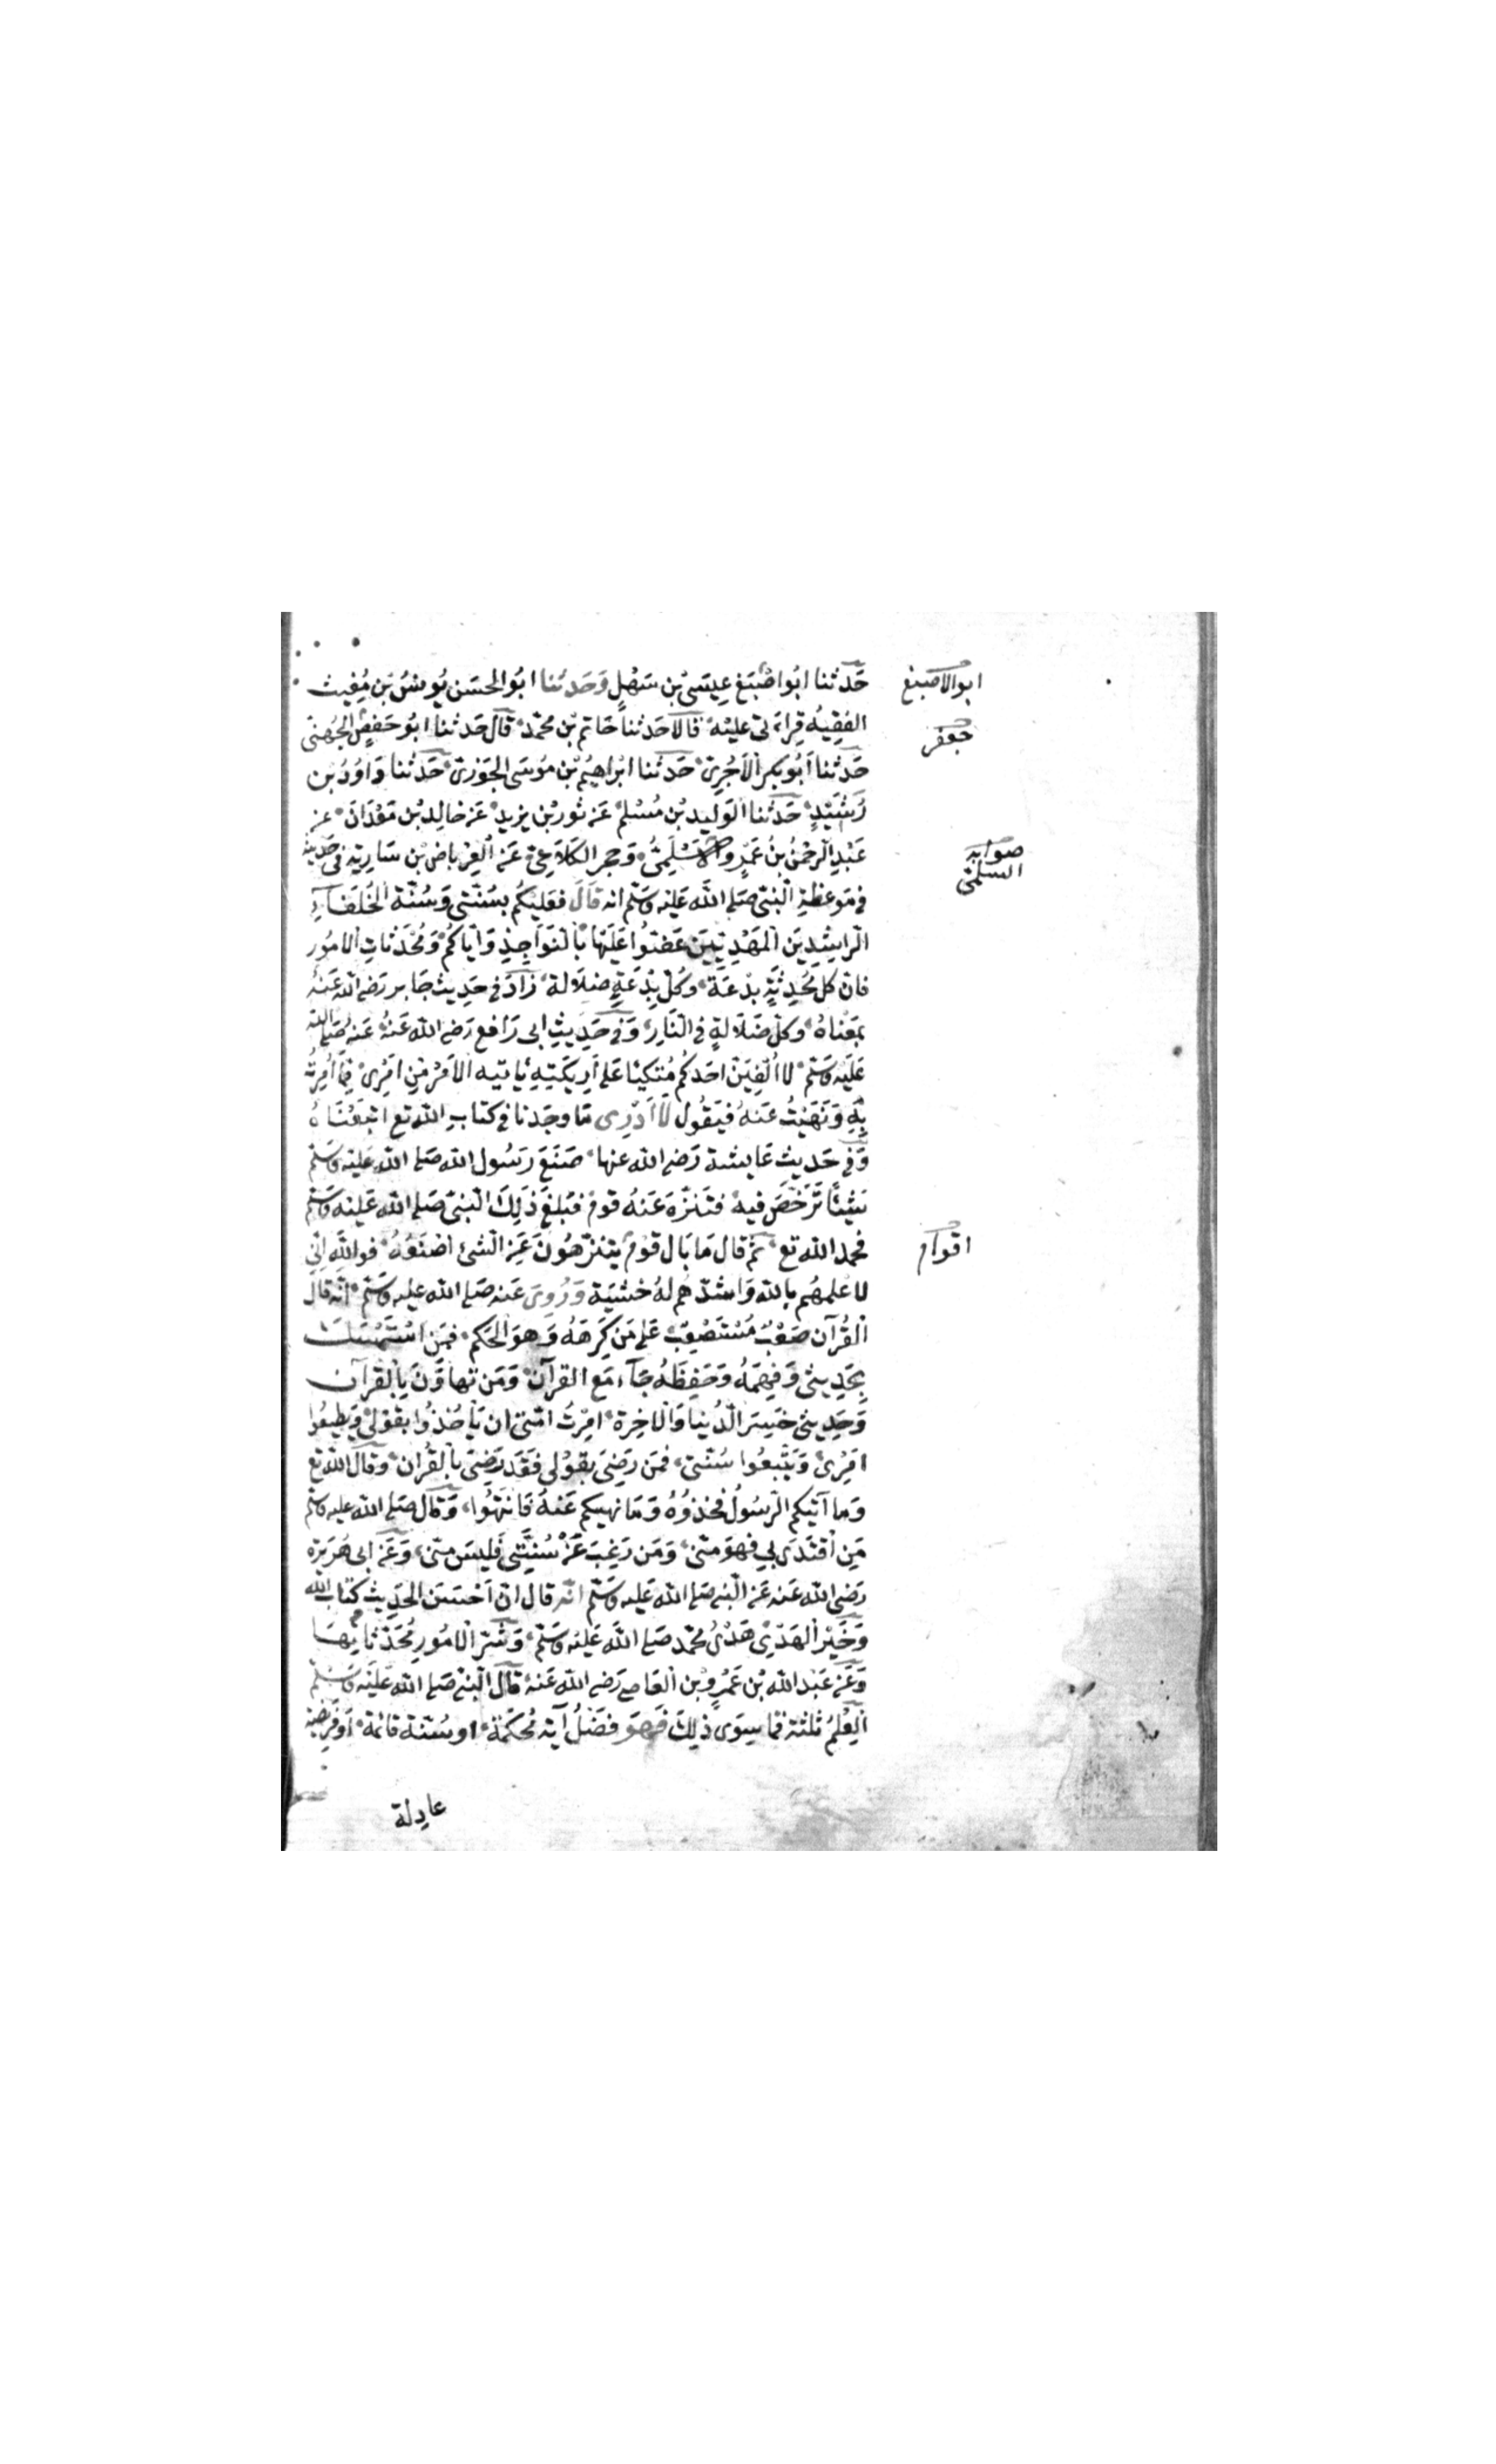 حَدثنا ابُوا صْبَغ عِيسَىْ بْن سَهْلٍ وَحَدثنا ابُو الحَسَن يُونسُ بْن مُغِيث
ابو الاصبغ
الفقِيهُ قِراءتى عليْه قالا حَدثنا حَاتم بْن محمّد قال حَدثنا ابُو حَفصٍ الجُهنىّ
جعفر
حَدثنا أبُو بكر الآجُرىّ حَدثنا ابْراهيمُ بْن مُوسَى الجَوْزىّ حَدثنا دَاوُدُ بْن
رُشَيْدٍ حَدثنا الوَليد بْن مُسْلم عَن ثور بْن يزيد عَن خالِد بْن مَعْدَانَ عن
عَبْدِ الرحْمنُ بنُ عَمْرٍو الاسْلَمِىُّ وَحجر الكَلاعِىّ عَن العِرْباض بْن سَارية فى حَديثه
صوابه
السلمىّ
فى مَوعظةِ النبىّ صَلى الله عَليْه وَسَلم انه قَالَ فعَليْكُم بسُنّتى وَسُنّة الخُلَفَآءِ
الرّاشِدِينَ المَهْدِيّينَ عَضّوُا عَلَيْهَا بالنَوَاجِذِ وَايّاكُمْ وَمُحْدَثاتِ الامُور
فانّ كل مُحْدثَةٍ بدْعَة وكُلّ بِدْعَةٍ ضلَالة زادَ فى حَدِيث جَابر رَضى الله عَنهُ
بمَعْناهُ وكلّ ضَلَالةٍ فى النّارِ وَفى حَدِيثِ ابى رَافع رَضى الله عَنهُ عَنهُ صَلى الله
عَليْه وَسَلم لا اُلْفِيَنّ احَدكُم مُتكِئًا عَلى أرِيكَتِهِ يَأتيه الامْرُ مِن امْرِىْ مِمّا أمرتُ
بِهِ وَنَهَيْتُ عَنهُ فيَقُول لَا ادْرِى مَا وجَدنا فى كتابِ الله تع اتبَعْنَاهُ
وَفى حَديث عَايشة رَضى الله عنها صَنَعَ رَسُول الله صَلى الله عَليْه وَسَلم
شَيْئًا تَرَخّصَ فيه فتَنزّهَ عَنهُ قومٌ فبَلغَ ذلِكَ النبىّ صَلى الله عَليْه وَسَلم
فحمد الله تع ثمّ قال مَا بَال قَوْمٍ يتنزّهُونَ عَن الشئ اصْنَعُهُ فوالله انّى
اقوام
لاعْلمهُم بالله وَاشدّهُم لهُ خشيَة وَرُوىَ عَنه صَلى الله عليه وَسَلم انّه قالَ
القُرآن صَعْبٌ مُسْتَصْعَبٌ عَلى مَن كَرهَهُ وَهوَ الحَكم فمَن اسْتَمْسَكَ
بحَدِيثى وَفهمَهُ وَحَفِظَهُ جَآء مَع القرآن وَمَن تهاوَنَ بالقرآن
وَحَدِيثى خَسِرَ الدُنيا وَالاخِرة امِرْتُ امّتى ان يَأخُذُوا بقَوْلى وَيطيعُوا
امْرِىْ وَيتّبعُوا سُنّتى فمَن رَضىَ بقَوْلى فقَد رَضىَ بالقُرآن وقال الله تع
وَما آتيكم الرّسُولُ فخذوُهُ وَمَا نهيكم عَنهُ فانتهُوا وَقال صَلى الله عليه وَسَلم
مَن اقتدَى بى فهوَ منّى وَمَن رَغبَ عَنْ سُنَّتى فليسَ منّى وَعَن ابى هُرَيرَة
رَضى الله عَنه عَن النبى صَلى الله عَليه وَسَلم انّه قال انّ احْسَن الحَدِيث كتاب الله
وَخَيْر الهَدْىِ هَدْىُ محمّد صَلى الله عَليْه وَسَلم وَشَرّ الامُورِ مُحْدَثاتهَا
وَعَن عَبد الله بْن عَمْرٍو بْن العَاصِ رَضى الله عَنهُ قال النبىّ صَلى الله عَليْه وَسَلم
العِلْمُ ثلثة فمَا سِوَى ذلِكَ فهوَ فضْلُ آية مُحْكَمَة او سُنّة قائمة أوْ فرِيضة
عادِلة